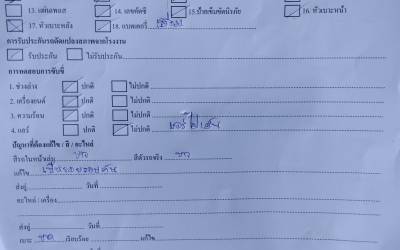 13. เสกิดเพลส 14. เลขตัวซี 15.ป้ายเข็มขัดนิรภัย 16. หัวเบาะหน้า
17. หัวเบาะหลัง 18. แบตเตอรี่
การรับประกันรถดัดแปลงสภาพจากโรงงาน
รับประกัน ไม่รับประกัน
การทดสอบการขับขี่
1. ช่วงล่าง ปกติ ไม่ปกติ
2. เครื่องยนต์ ปกติ ไม่ปกติ
3. ความร้อน ปกติ ไม่ปกติ
4. แอร์ ปกติ ไม่ปกติ แอร์ไม่เย็น
ปัญหาที่ต้องแก้ไข / สี / อะไหล่
สีรถในหน้าเล่ม ขาว สีตัวรถจริง ขาว
แก้ไข
ส่งอู่ วันที่
อะไหล่ / เครื่อง
ส่งอู่ วันที่
เบาะ ชุด เรียบร้อย แก้ไข